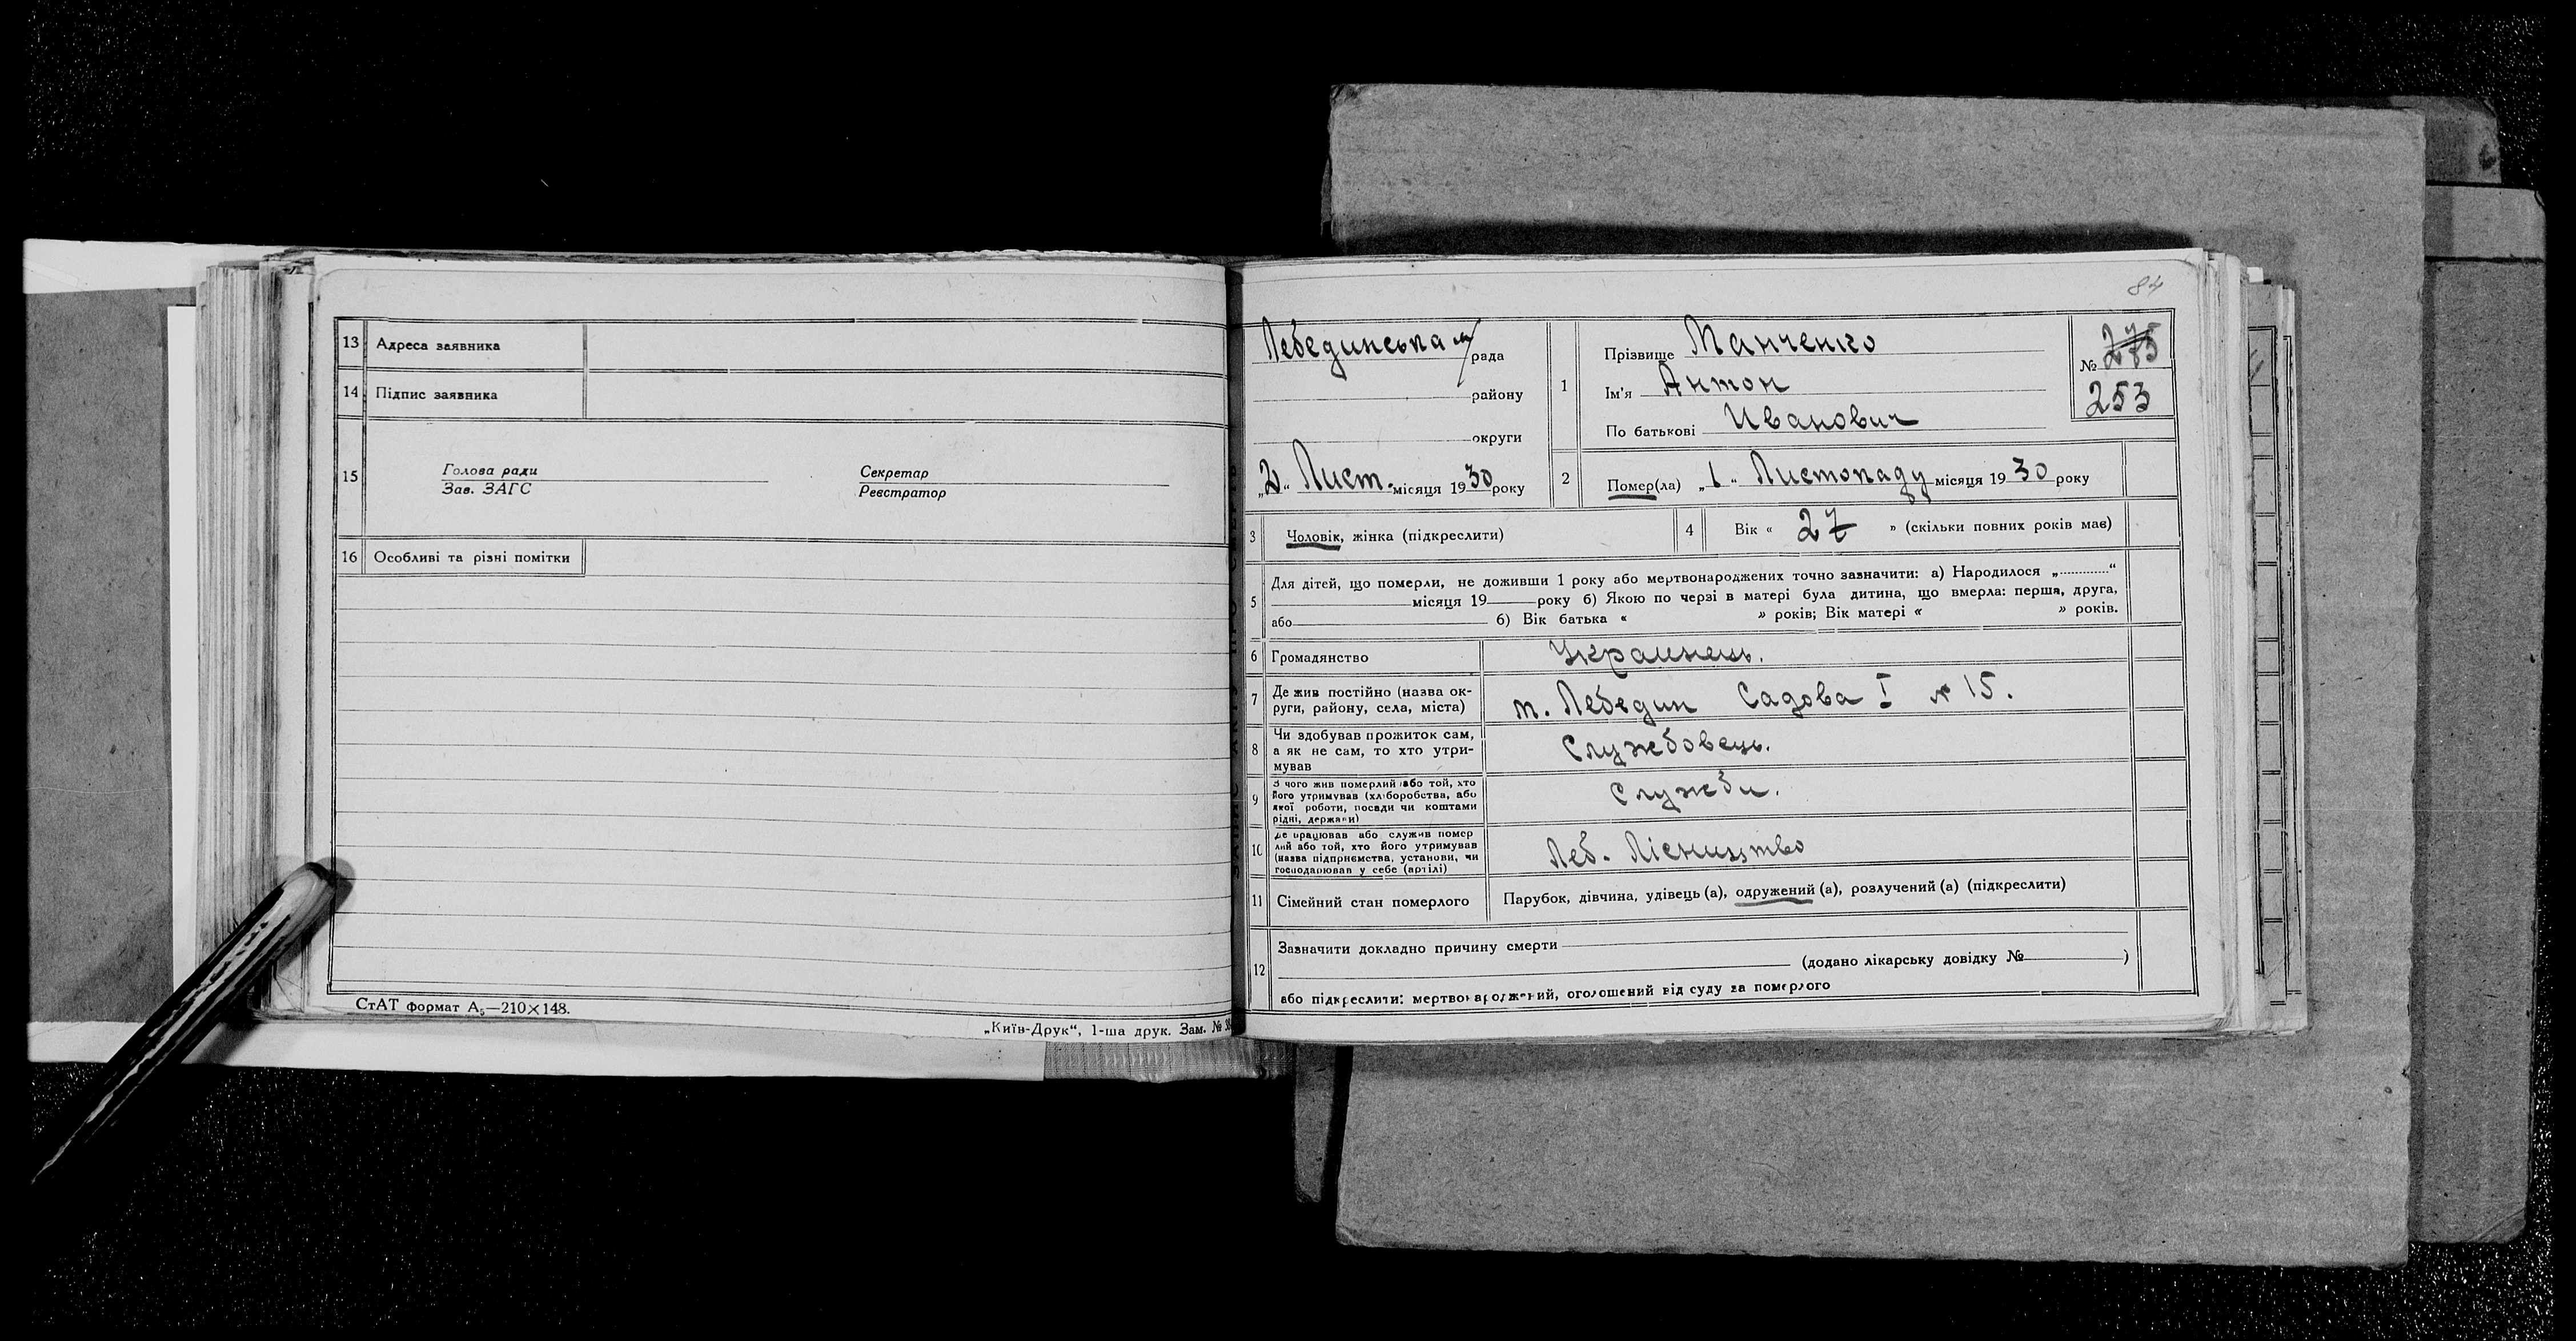 13 Адреса заявника
14 Підпис заявника
15 Голова ради Секретар
Зав. ЗАГС Реєстратор
16 Особливі та різні помітки
СтАТ формат А5—210×148.
„Київ-Друк“, 1-ша друк. Зам. №
84
Лебединська м/рада
району
округи
„2“ Лист. місяця 1930 року
1 Прізвище Манченко
Ім'я Антон
По батькові Иванович
№ 275
253
2 Помер(ла) „1“ Листопаду місяця 1930 року
3 Чоловік, жінка (підкреслити)
4 Вік « 27 » (скільки повних років має)
5 Для дітей, що померли, не доживши 1 року або мертвонароджених точно зазначити: а) Народилося „ “
місяця 19 року б) Якою по черзі в матері була дитина, що вмерла: перша, друга,
або б) Вік батька « » років; Вік матері « » років.
6 Громадянство Украинець.
7 Де жив постійно (назва ок-
руги, району, села, міста) м. Лебедин Садова I № 15.
8 Чи здобував прожиток сам,
а як не сам, то хто утри-
мував Службовець.
9 З чого жив померлий або той, хто
його утримував (хліборобства, або
якої роботи, посади чи коштами
рідні, держави) Служби.
10 Де працював або служив помер
лий або той, хто його утримував
(назва підприємства, установи, чи
господарював у себе (артілі) Леб. Лісництво
11 Сімейний стан померлого Парубок, дівчина, удівець (а), одружений (а), розлучений (а) (підкреслити)
12 Зазначити докладно причину смерти
(додано лікарську довідку № )
або підкреслити: мертвонароджений, оголошений від суду за померлого